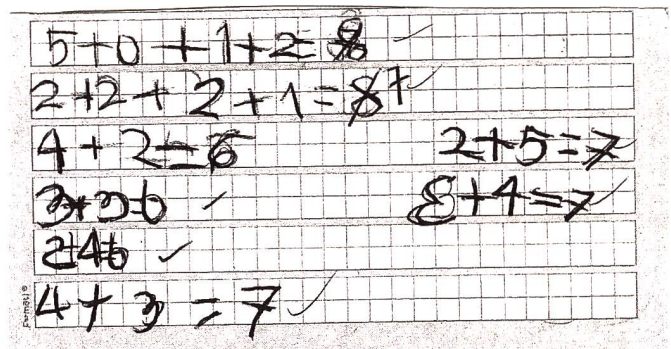 5+0+1+2=8
2+2+2+1=7
4+2=6 2+5=7
3+3=6 +4=7
2+4=6
4+3=7